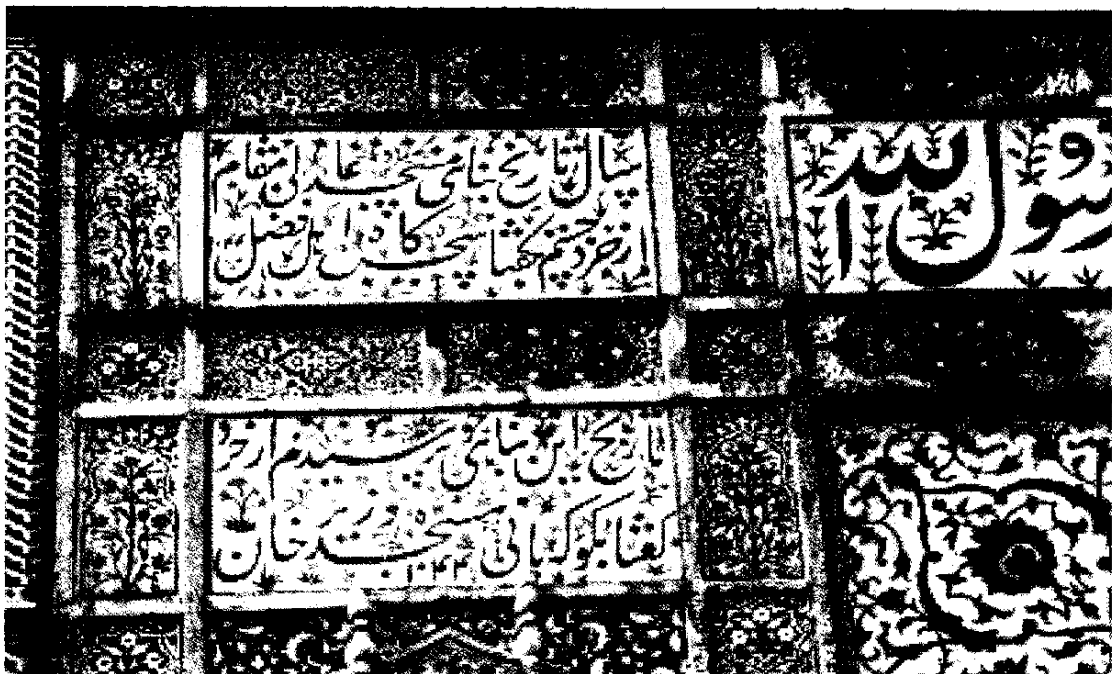 سال تاریخ بنای مسجد عالی مقام
از خرد جستم بگفتا سجده گاه اهل فضل
رسول الله
تاریخ این بنای چو پرسیدم از خرد
گفتا بگو که بانی مسجد وزیر خان